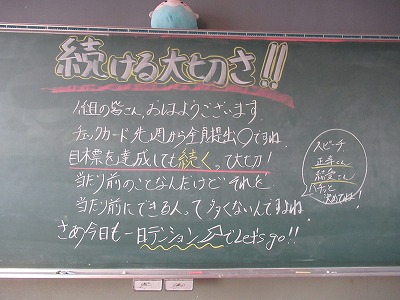 続ける大切さ!!
組の皆さん、おはようございます。
チェックカード先週から全員提出〇ですね。
目標を達成しても続く。って大切!
当たり前のことなんだけどそれを
当たり前にできる人って多くないんですよね。
さぁ今日も一日テンション⤴でLet's go!!
スピーチ
さん
さん
バチッと
決めてね!